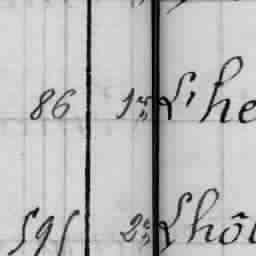 86 1º L'he
595 2º L'hô